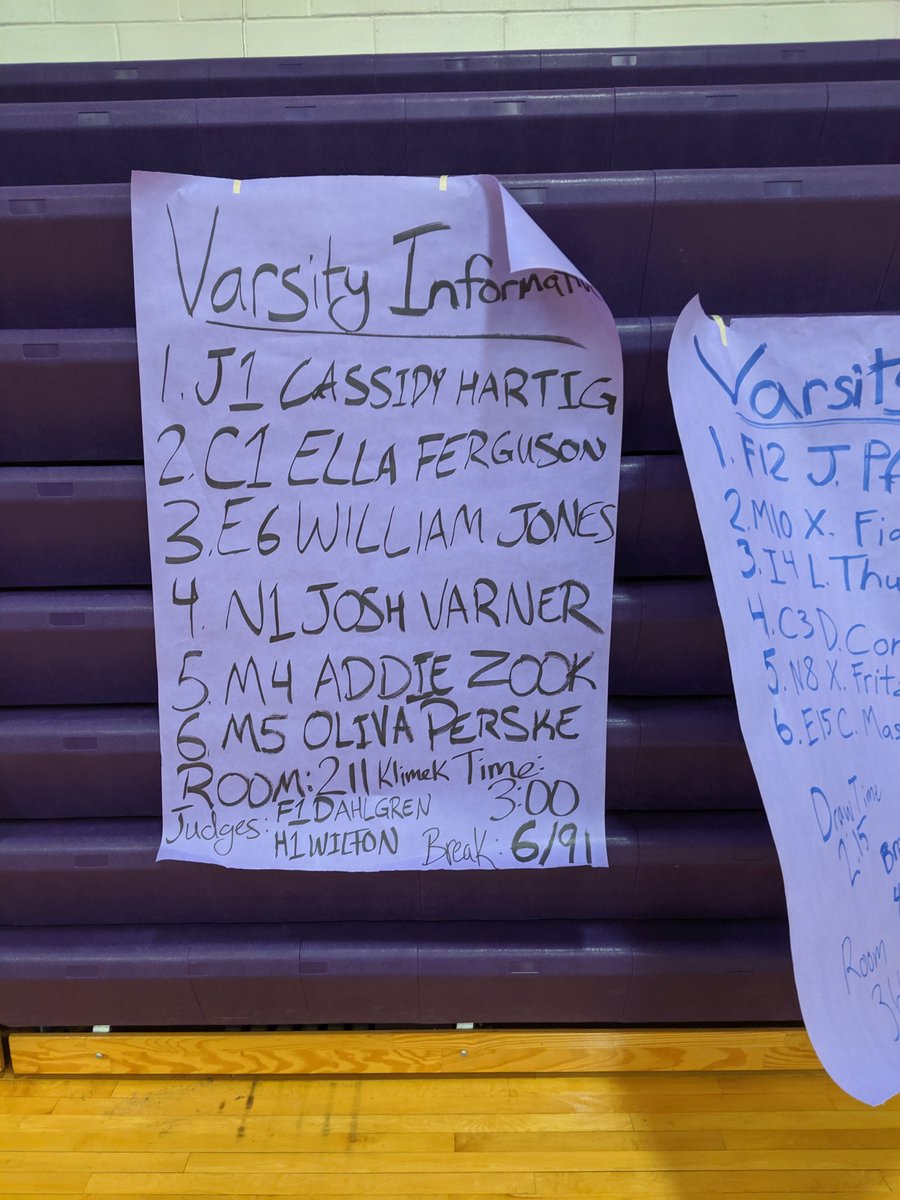 Varsity Informati
1. J1 CASSIDY HARTIG
2. C1 ELLA FERGUSON
3. E6 WILLIAM JONES
4. N1 JOSH VARNER
5. M4 ADDIE ZOOK
6 M5 OLIVA PERSKE
ROOM: 211 Klimek Time: 3:00
Judges: F1 DAHLGREN
H1 WILTON
Break: 6/91
Varsity
1. F12 J.
2. M10 X.
3. I4 L. Thu
4. C3 D. Con
5. N8 X. Fritz
6. E15 C. Mas
Draw Time
2:15
Room